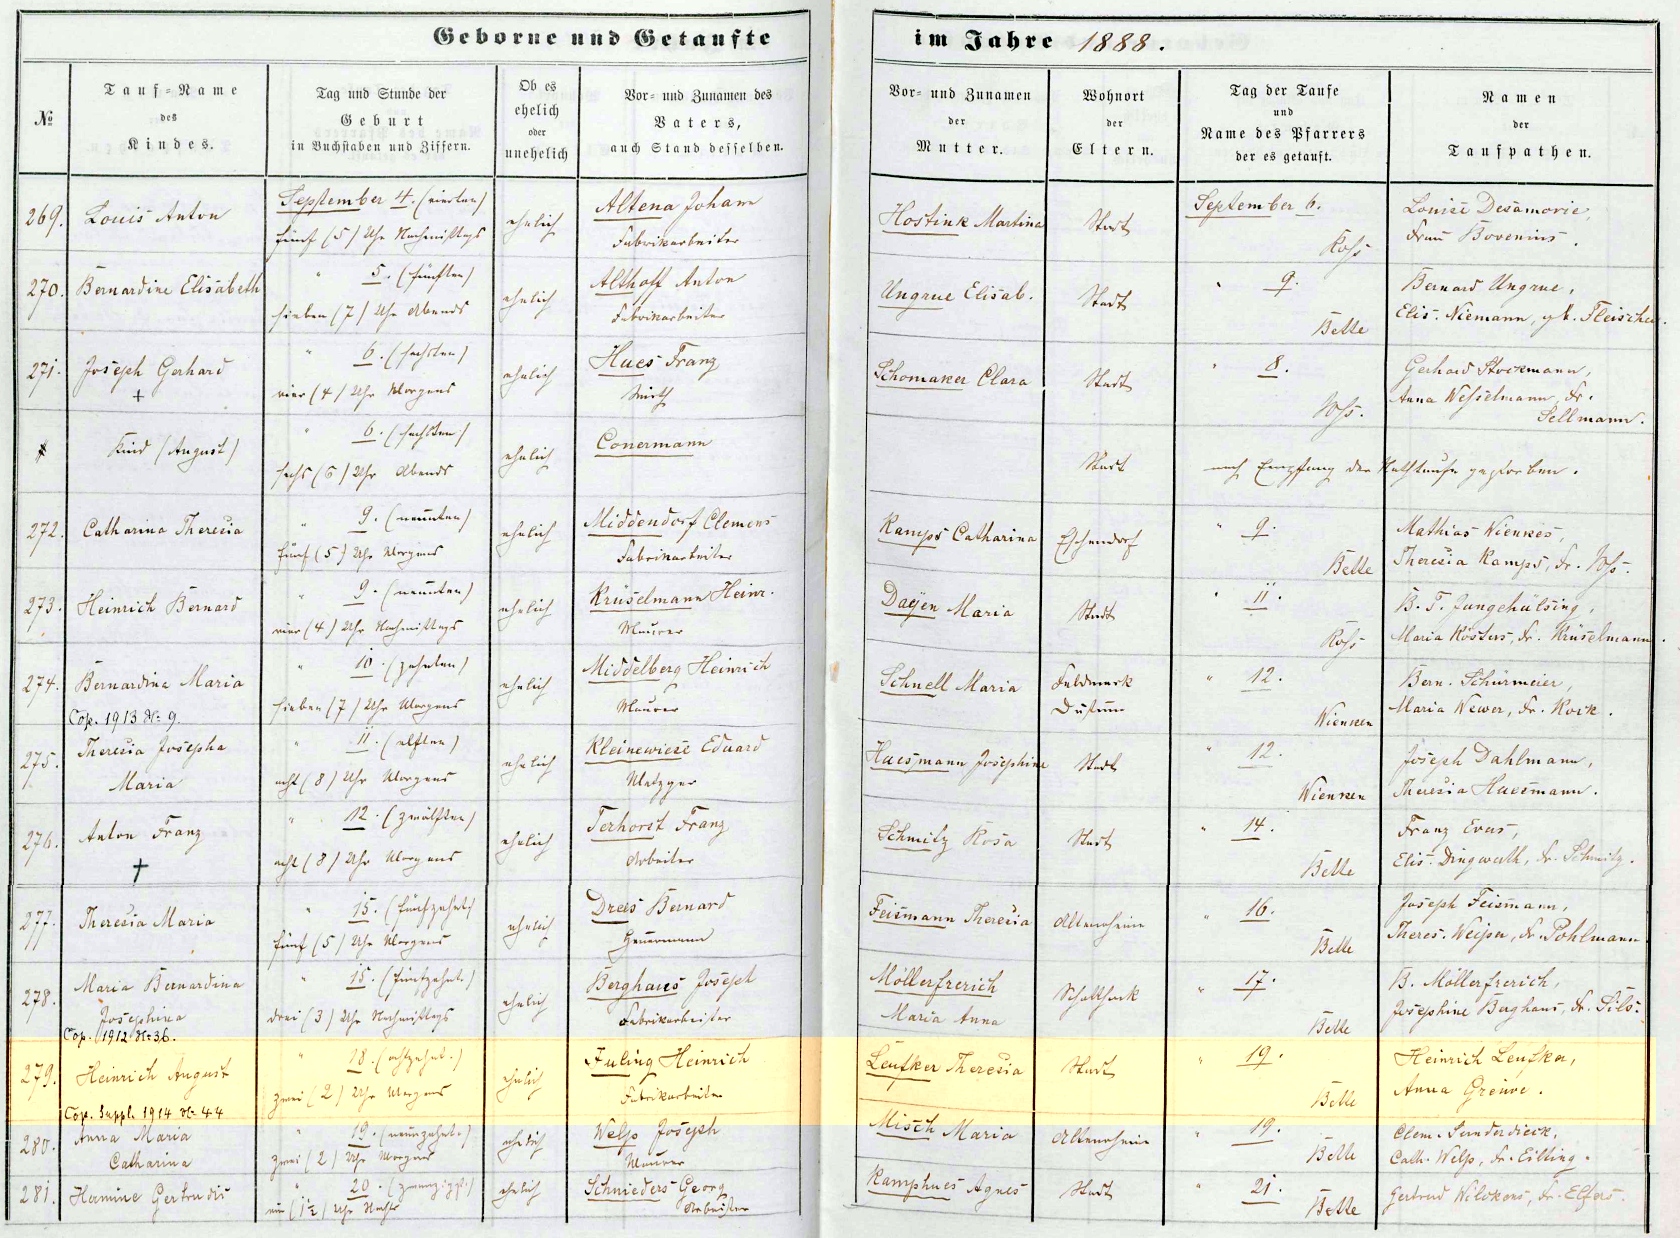 Geborne und Getaufte im Jahre 1888.
№
Tauf-Name
des
Kindes.
Tag und Stunde der
Geburt
in Buchstaben und Ziffern.
Ob es
ehelich
oder
unehelich
Vor- und Zunamen des
Vaters,
auch Stand desselben.
Vor- und Zunamen
der
Mutter.
Wohnort
der
Eltern.
Tag der Taufe
und
Name des Pfarrers
der es getauft.
Namen
der
Taufpathen.
269. Louis Anton
September 4. (vierten)
fünf (5) Uhr Nachmittags
ehelich
Altena Johann
Fabrikarbeiter
Hostink Martina
Stadt
September 6.
Louise Desamorie,
Frau Bovenius.
270. Bernardine Elisabeth
" 5. (fünften)
sieben (7) Uhr Abends
ehelich
Althoff Anton
Fabrikarbeiter
Ungrue Elisab.
Stadt
" 9.
Bette
Bernard Ungrue,
Elis. Niemann, gb. Fleischer.
271. Joseph Gerhard
+
" 6. (sechsten)
vier (4) Uhr Morgens
ehelich
Hues Franz
Wirth
Schomaker Clara
Stadt
" 8.
Gerhard Stockmann,
Anna Wesselmann, Fr.
Sellmann.
Kind (August)
" 6. (sechsten)
sechs (6) Uhr Abends
ehelich
Conermann
Stadt
nach Empfang der Nothtaufe gestorben.
272. Catharina Theresia
" 9. (neunten)
fünf (5) Uhr Morgens
ehelich
Middendorf Clemens
Fabrikarbeiter
Kamps Catharina
Eschendorf
" 9.
Bette
Mathias Wienkes,
Theresia Kamps, Fr.
273. Heinrich Bernard
" 9. (neunten)
vier (4) Uhr Nachmittags
ehelich
Krüselmann Heinr.
Maurer
Dayen Maria
Stadt
" 11.
B. T. Jungehülsing,
Maria Kösters, Fr. Krüselmann.
274. Bernardina Maria
Cop. 1913 № 9.
" 10. (zehnten)
sieben (7) Uhr Morgens
ehelich
Middelberg Heinrich
Maurer
Schnell Maria
Feldmark
Dutum
" 12.
Wienken
Bern. Schürmeier,
Maria Wewer, Fr. Kock.
275. Theresia Josepha
Maria
" 11. (elften)
acht (8) Uhr Morgens
ehelich
Kleinewiese Eduard
Metzger
Huesmann Josephine
Stadt
" 12.
Wienken
Joseph Dahlmann,
Theresia Huesmann.
276. Anton Franz
†
" 12. (zwölften)
acht (8) Uhr Morgens
ehelich
Terhorst Franz
Arbeiter
Schmitz Rosa
Stadt
" 14.
Bette
Franz Evers,
Elis. Dingwerth, Fr. Schmitz.
277. Theresia Maria
" 15. (fünfzehnt.)
fünf (5) Uhr Morgens
ehelich
Drees Bernard
Heuermann
Feismann Theresia
Altenrheine
" 16.
Bette
Joseph Feismann,
Theres. Weiper, Fr. Pohlmann
278. Maria Bernardina
Josephina
Cop. 1912 № 36.
" 15. (fünfzehnt.)
drei (3) Uhr Nachmittags
ehelich
Berghaus Joseph
Fabrikarbeiter
Möllerfrerich
Maria Anna
Schotthock
" 17.
Bette
B. Möllerfrerich,
Josephine Berghaus, Fr.
279. Heinrich August
Cop. Suppl. 1914 № 44
" 18. (achtzehnt.)
zwei (2) Uhr Morgens
ehelich
Juling Heinrich
Fabrikarbeiter
Leufker Theresia
Stadt
" 19.
Bette
Heinrich Leufker,
Anna Greuve.
280. Anna Maria
Catharina
" 19. (neunzehnt.)
zwei (2) Uhr Morgens
ehelich
Welp Joseph
Maurer
Misch Maria
Altenrheine
" 19.
Bette
Clem. Sunderdieck,
Cath. Welp, Fr. Eilting.
281. Hermine Gertrudis
" 20. (zwanzigst.)
ein (1½) Uhr Nachts
ehelich
Schnieders Georg
Arbeiter
Kamphues Agnes
Stadt
" 21.
Bette
Gertrud Wilckens, Fr. Elfers.